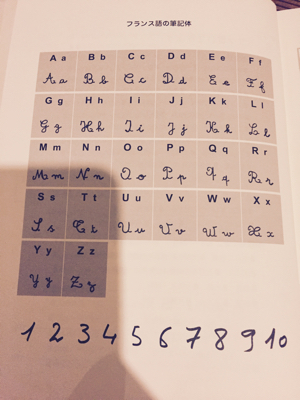 フランス語の筆記体
A a B b C c D d E e F f
A a B b C c D d E e F f
G g H h I i J j K k L l
G g H h I i J j K k L l
M m N n O o P p Q q R r
M m N n O o P p Q q R r
S s T t U u V v W w X x
S s T t U u V v W w X x
Y y Z z
Y y Z z
1 2 3 4 5 6 7 8 9 10